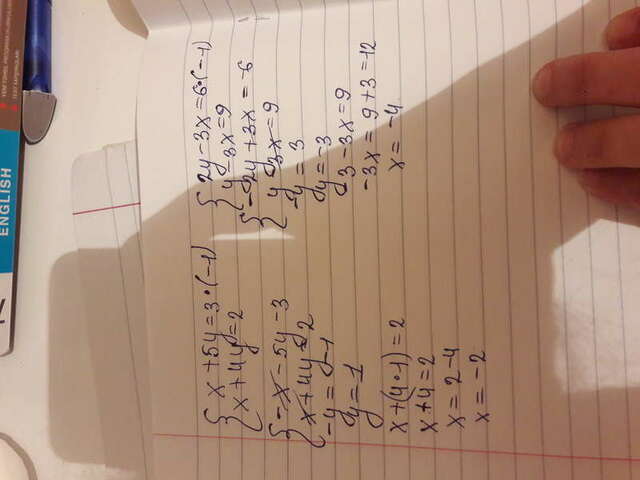 x+5y=3·(-1)
x+4y=2
-x-5y-3
x+4y=2
-y=-1
y=1
x+(4·1)=2
x+4=2
x=2-4
x=-2
2y-3x=6·(-1)
y-3x=9
-2y+3x=-6
y-3x=9
-y=3
y=-3
-3-3x=9
-3x=9+3=12
x=-4
ENGLISH